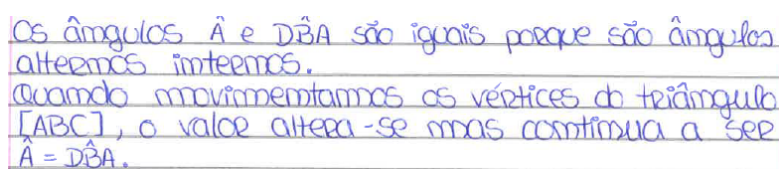 Os ângulos Â e DB̂A são iguais porque são ângulos
alternos internos.
Quando movimentamos os vértices do triângulo
[ABC], o valor altera-se mas continua a ser
Â = DB̂A.